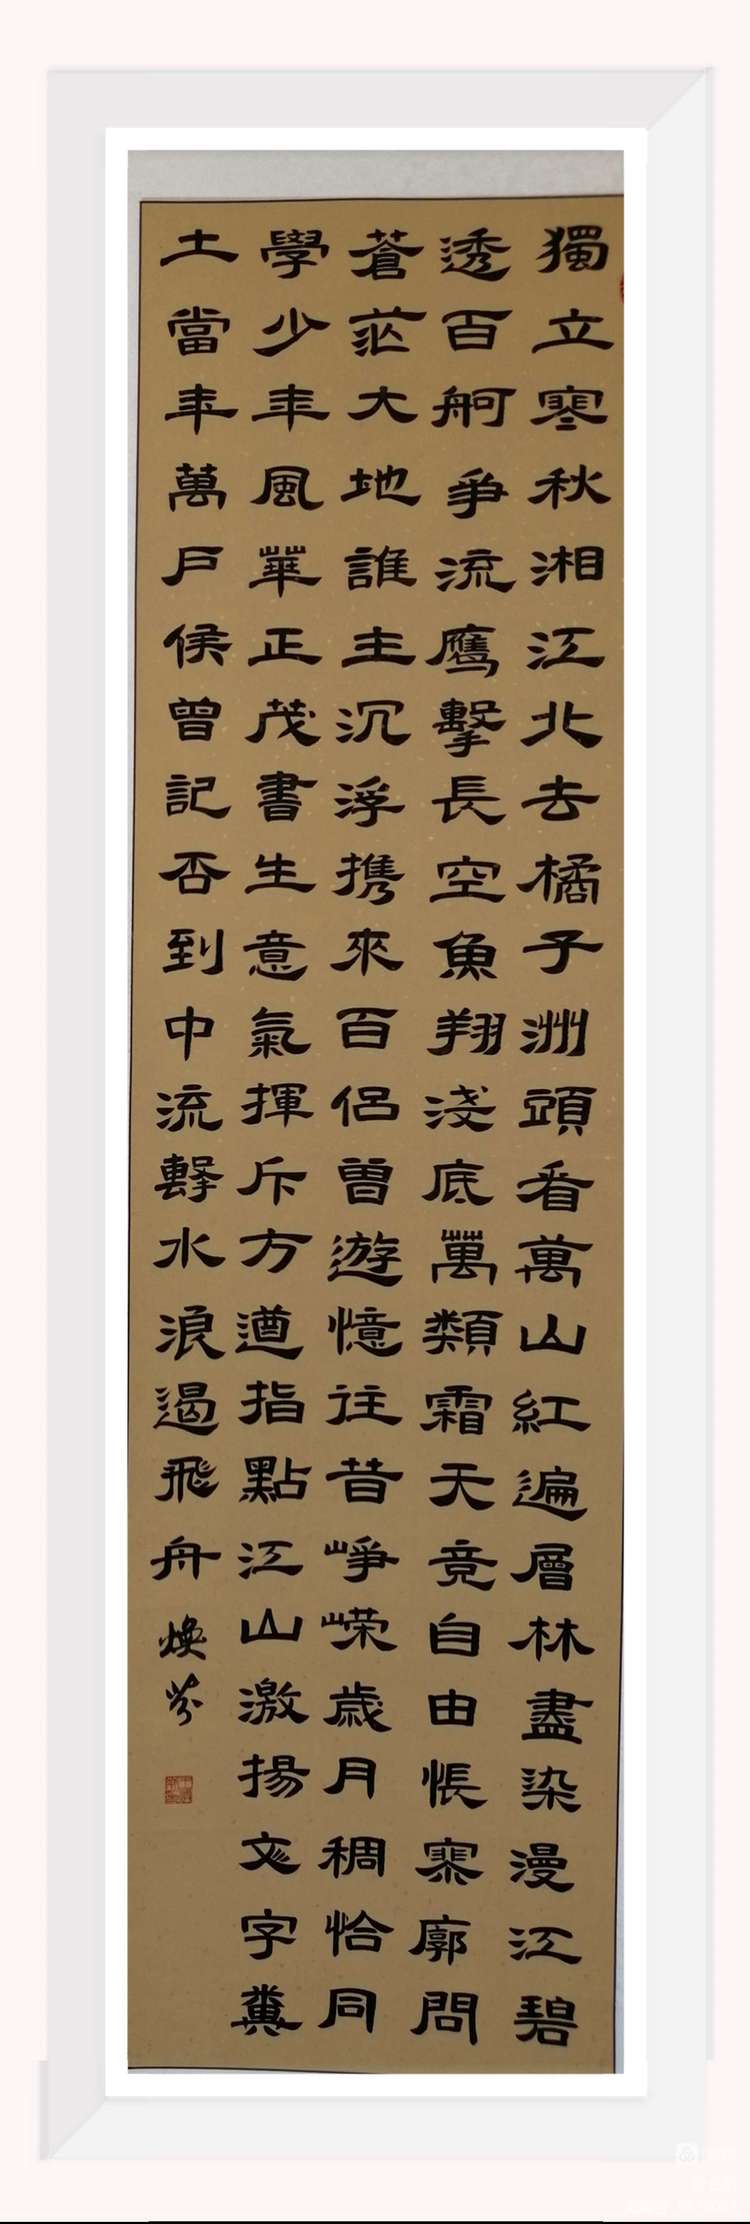 獨立寒秋湘江北去橘子洲頭看萬山紅遍層林盡染漫江碧
透百舸爭流鹰擊長空魚翔淺底萬類霜天竟自由悵寥廓問
蒼茫大地誰主沉浮携來百侶曾遊憶往昔崢嵘歲月稠恰同
學少年風華正茂書生意氣揮斥方遒指點江山激揚文字糞
土當年萬戶侯曾記否到中流擊水浪遏飛舟 煥芬